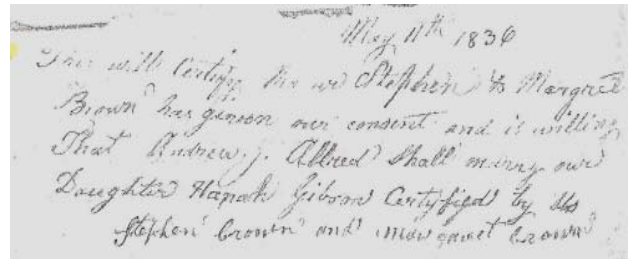 May 11th 1836
This will Certify tha we Stephen & Margret
Brown has geveon our consent and is willing
That Andrew. J. Allred Shall marry our
Daughter Hanah Gibson Certyfied by Us
Stephen brown and margaret brown